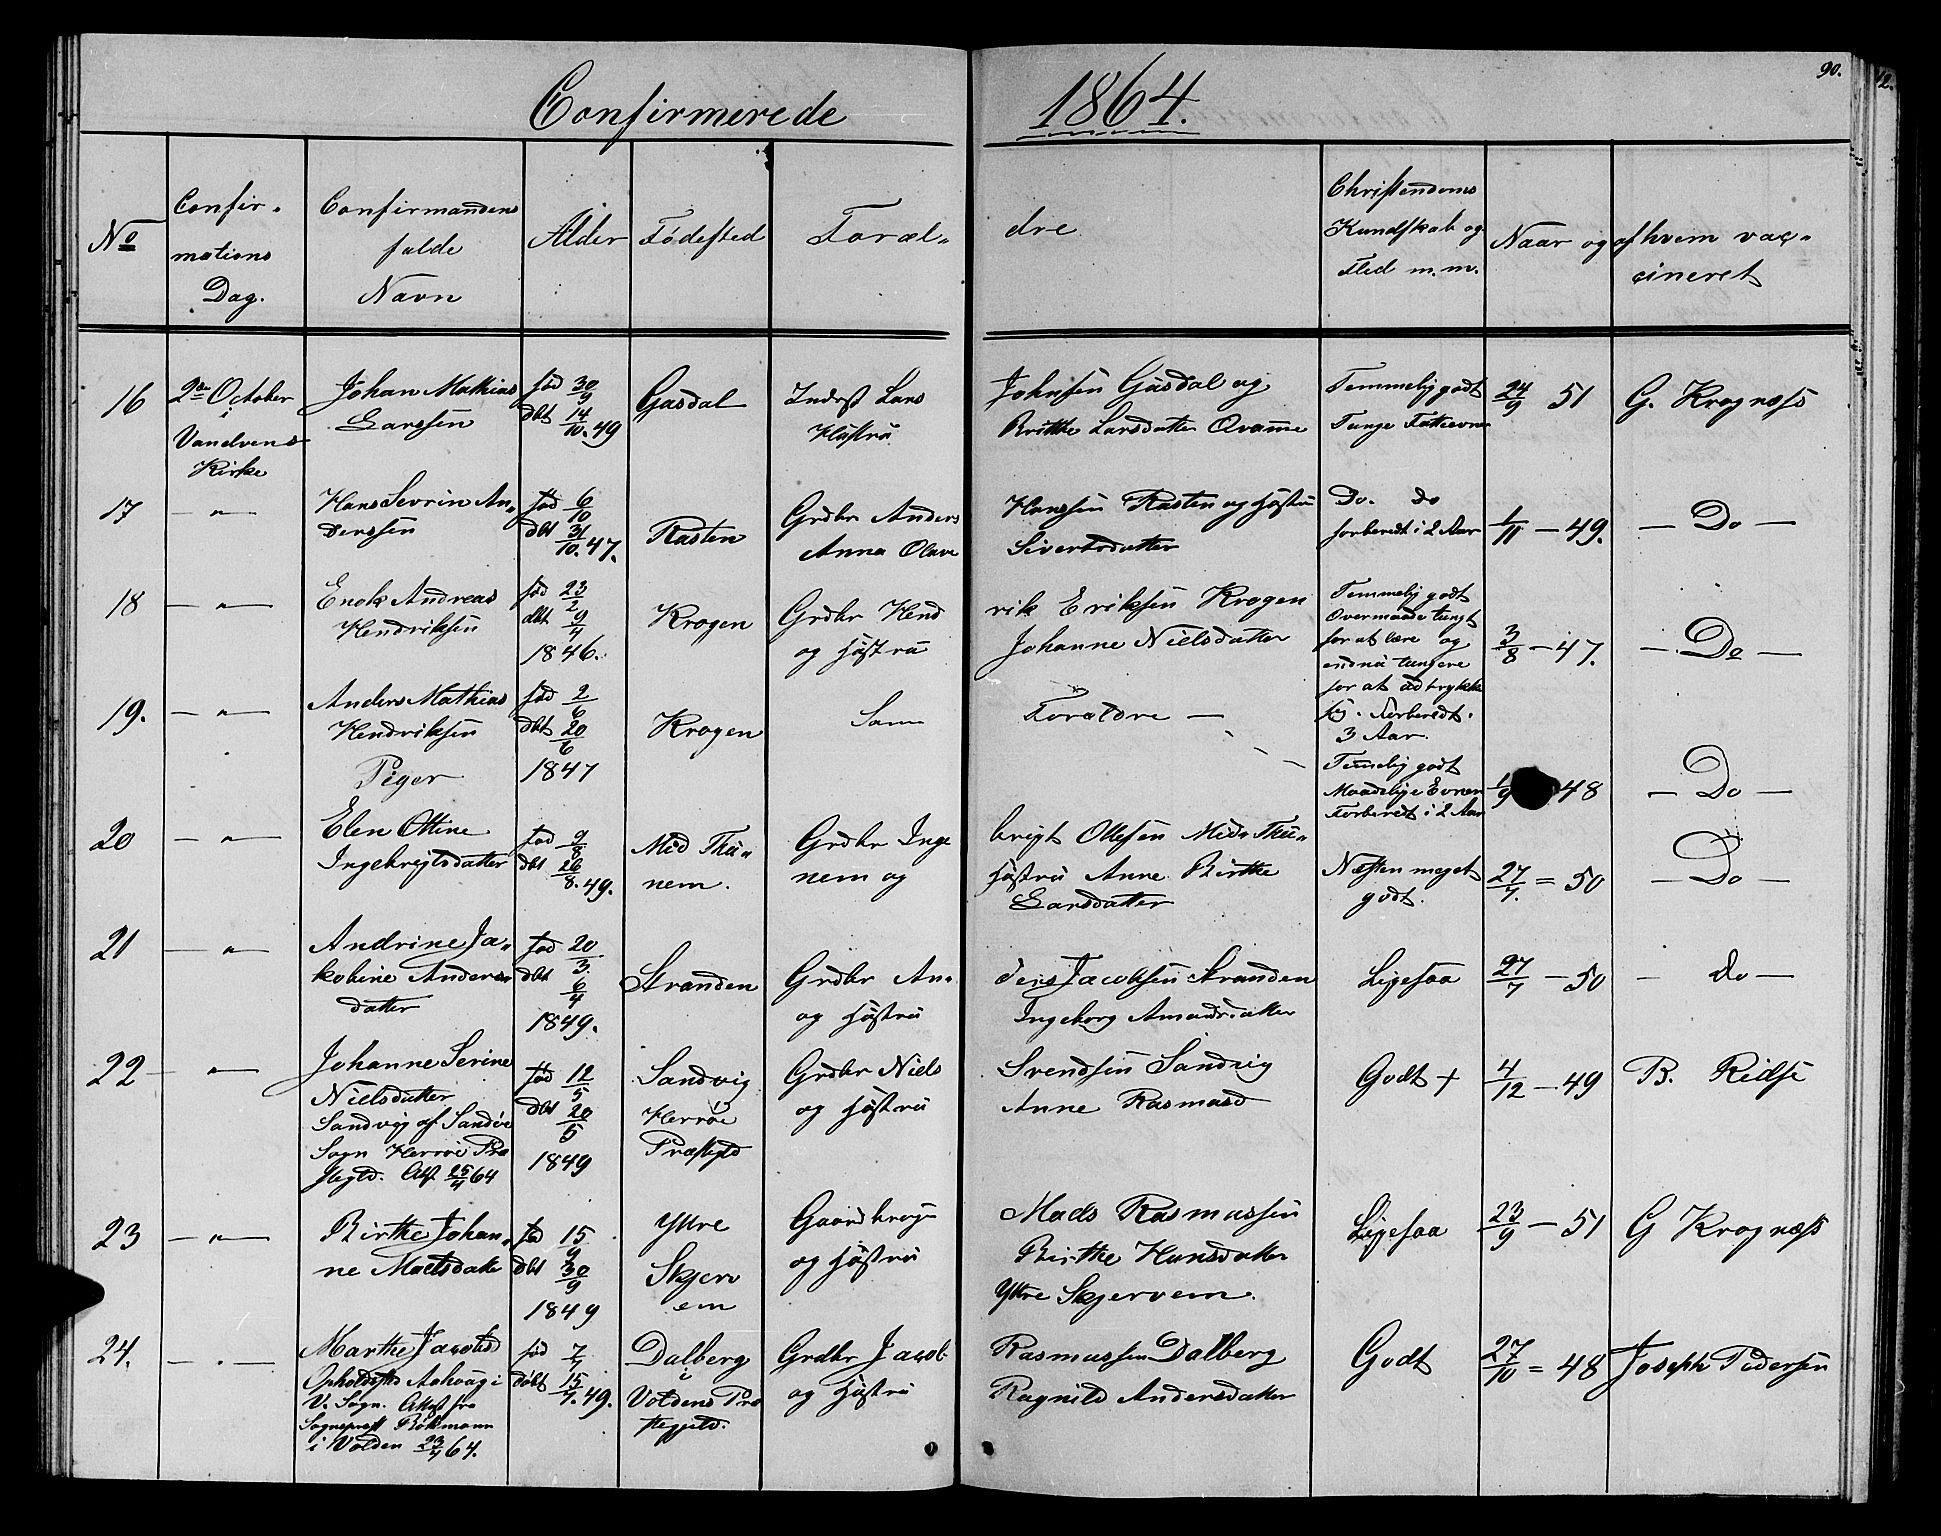 Confirmerede 1864.
90.
No
Confir-
mations
Dag.
Confirmandens
fulde
Navn
Alder
Fødested
Foræl-
dre
Christendoms
Kundskab og
Flid m.m.
Naar og af hvem vac-
cineret
16
2den October
i
Vandvens
Kirke
Johan Mathias
Larssen
fød 30/9
dbt 14/10. 49
Gasdal
Inderst Lars
Hustru
Johnsen Gasdal og
Birthe Larsdatter Qvamme
Temmelig godt
Tunge Fatteevne
24/9 51
G. Krognæss
17
— " —
Hans Sevrin An-
derssen
fød 6/10
dbt 31/10. 47.
Rasten
Grdbr Anders
Anna Olave
Hanssen Rasten og Hustru
Sivertsdatter
Do. do
forberedt i 2 Aar
1/11 — 49.
— Do —
18
— " —
Enok Andreas
Hendriksen
fød 23/2
dbt 9/4
1846.
Krogen
Grdbr Hend
og Hustru
rik Eriksen Krogen
Johanne Nielsdatter
Temmelig godt
Overmaade tungt
for at lære og
endnu tungere
for at udtrykke
sig. Forberedt.
3 Aar.
3/8 — 47.
— Do —
19.
— " —
Anders Mathias
Hendriksen
fød 2/6
dbt 20/6
1847
Krogen
Sam
Forældre —
Temmelig godt
Maadelige Evner
Forberedt i 2 Aar
1/9 48
— Do —
Piger
20
— " —
Elen Ottine
Ingebrigtsdatter
fød 9/8
dbt 26/8. 49.
Mid Thu-
nem.
Grdbr Inge
nem og
brigt Ollesen Mid-Thu-
Hustru Anne Birthe
Larsdatter
Næsten meget
godt.
27/7. = 50
— Do —
21
— " —
Andrine Ja-
kobine Anders-
datter
fød 20/3
dbt 6/4
1849.
Stranden
Grdbr An-
og Hustru
ders Jacobsen Stranden
Ingeborg Amundsdatter
Ligesaa
27/7 — 50
— do —
22
— " —
Johanne Serine
Nielsdatter
Sandvig af Sandøe
Sogn Herrøe Præ
stegld. Att 25/4 64
fød 12/5
dbt 20/5
1849
Sandvig
Herrøe
Præstgld
Grdbr Niels
og Hustru
Svendsen Sandvig
Anne Rasmusd
Godt +
4/12 — 49
B. Ridse
23
— " —
Birthe Johan-
ne Madsdatter
fød 15/9
dbt 30/9
1849
Yttre
Skjerv
em
Gaardbruger
og Hustru
Mads Rasmussen
Birthe Hansdatter
Yttre Skjervem.
Ligesaa
23/9 — 51
G Krognæss
24.
— " —
Marthe Jacobsd
Opholdsted Aahvag i
V. Sogn. Attest fra
Sognepræst
i Volden 23/4 64.
fød 7/7
døbt 15/7. 49.
Dalberg
i
Voldens Præ
stegjeld.
Grdbr Jacob
og Hustru
Rasmussen Dalberg
Ragnild Andersdatter
Godt
27/10 = 48
Joseph Pedersen